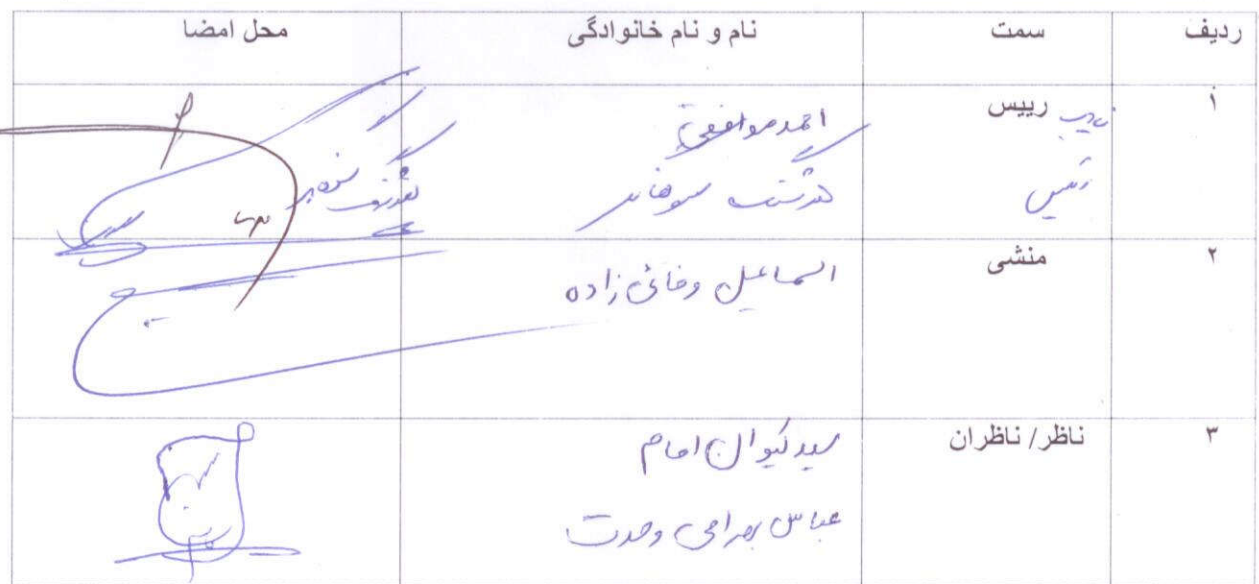 ردیف سمت نام و نام خانوادگی محل امضا
۱ نایب رییس احمد موافقی
رئیس
۲ منشی اسماعیل وفائی زاده
۳ ناظر/ ناظران سید کیوان امام
عباس بهرامی وحدت